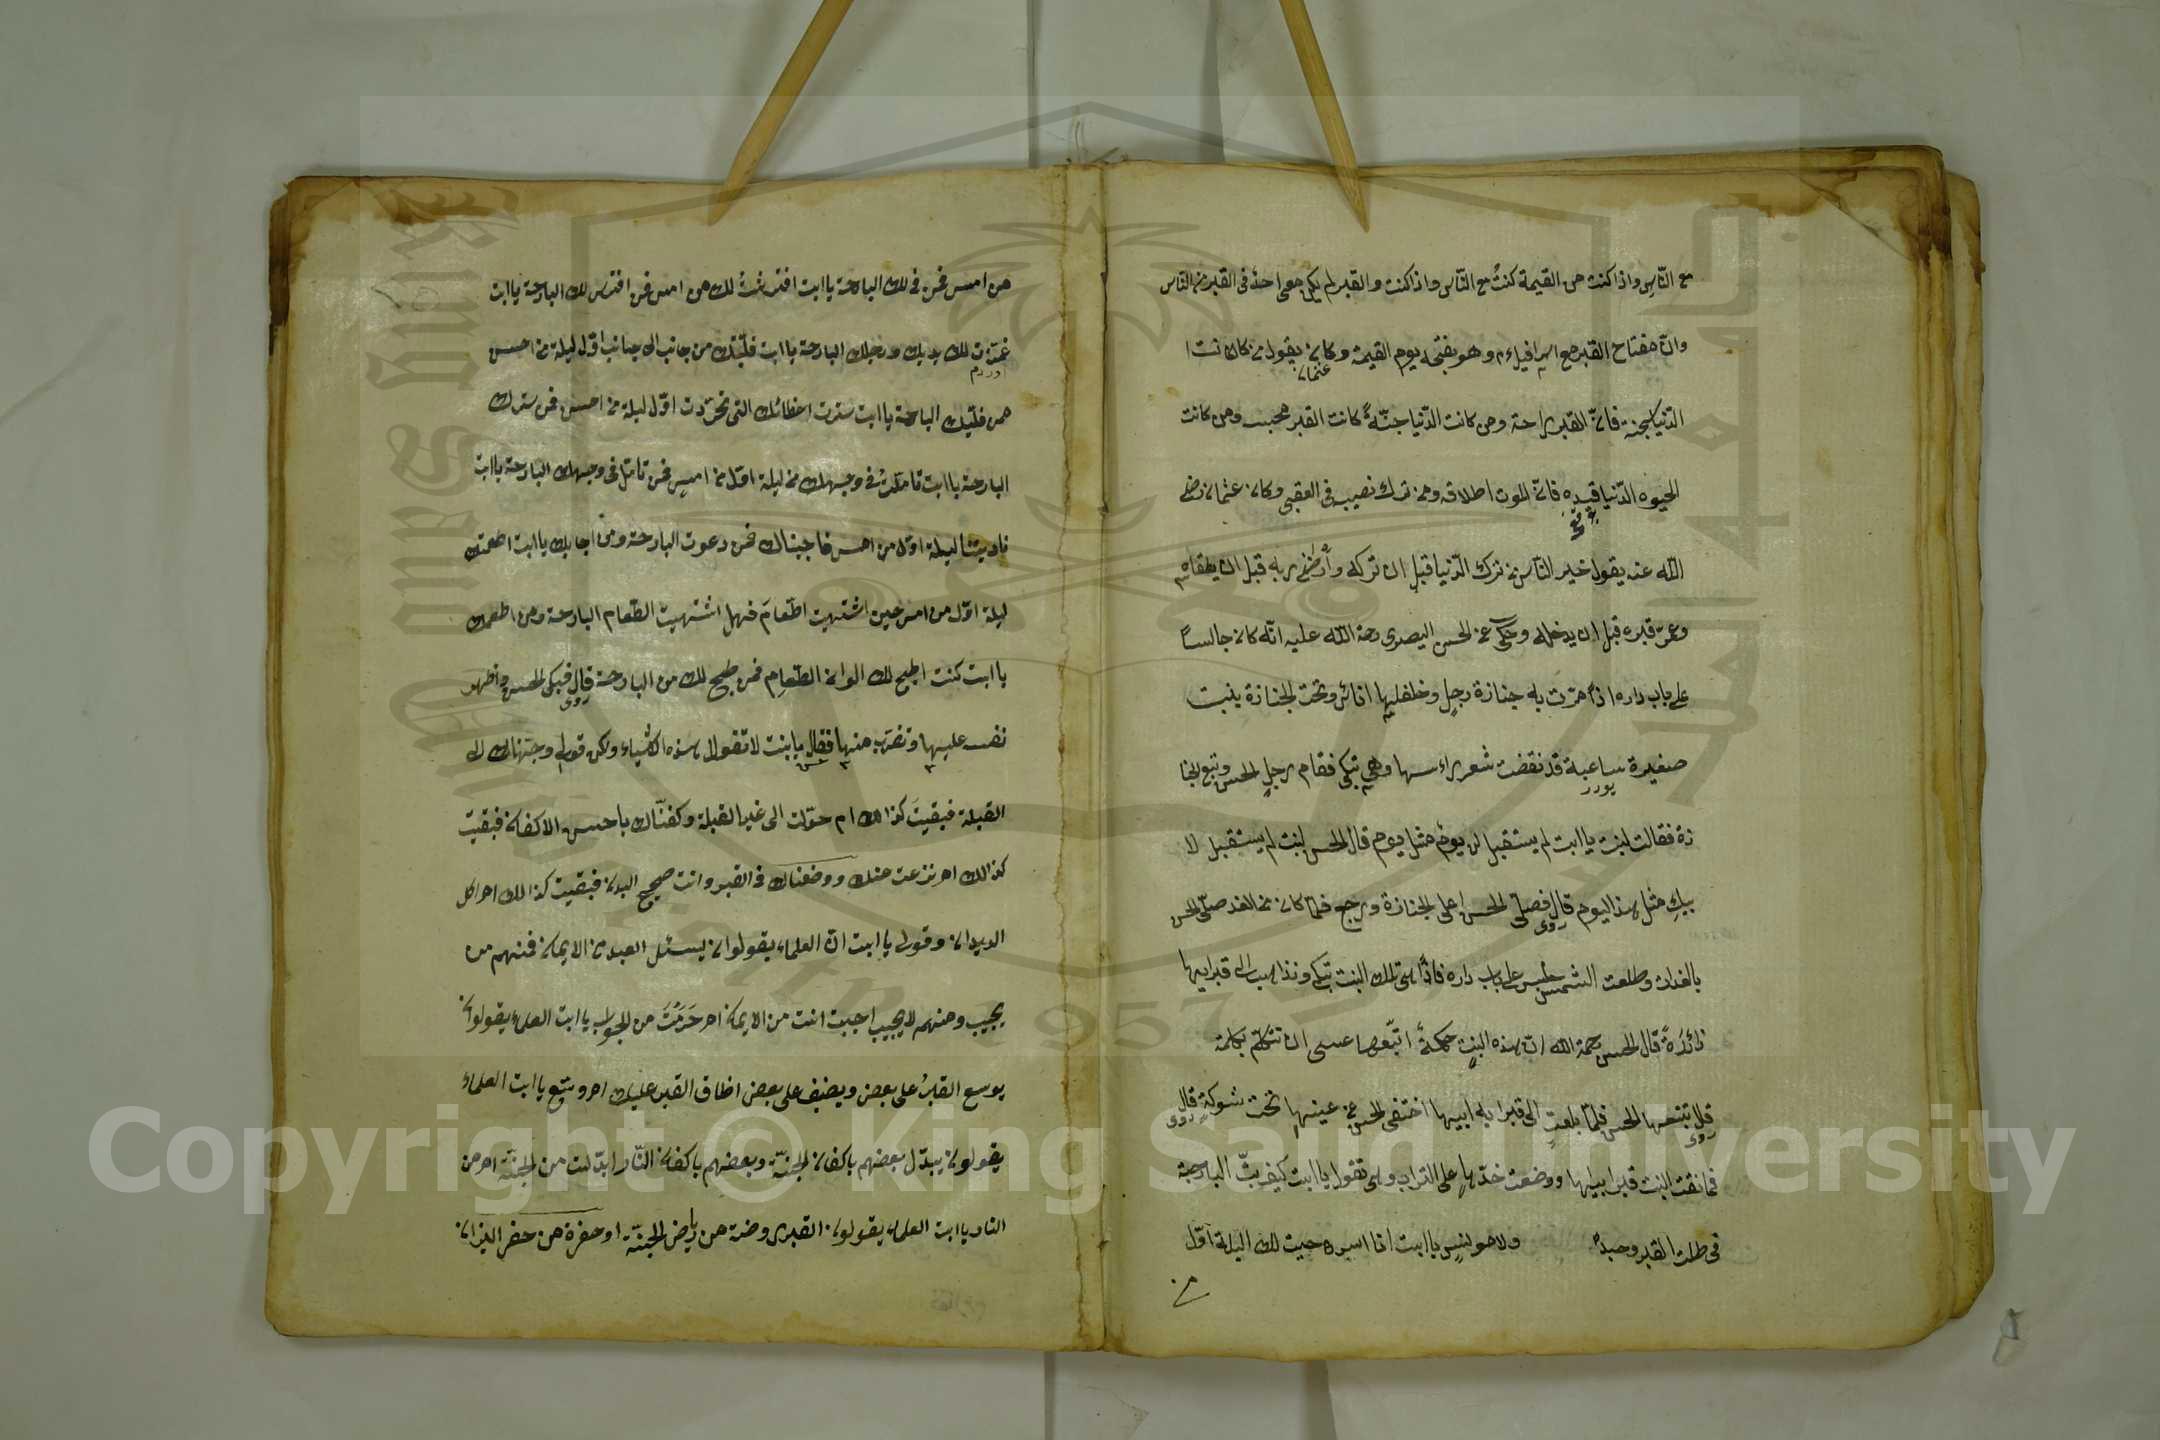 مع النّاس واذا كنت من القيمة كنتُ مع النّاس واذا كنت والقبر لم يكن معى احدٌ فى القبر من النّاس
وانّ مفتاح القبر مع اسرافيل ع م وهو يفتحه يوم القيمة وكان يقول من كانت
عثمان
الدّنيا سجنه فانّ القبر راحة ومن كانت الدّنيا جنّةً كانت القبر محبسه ومن كانت
الحيوه الدّنيا قيده فانّ الموت اطلاقه ومن ترك نصيبه فى العقبى وكان عثمان رضى
اللّه عنه يقول خير النّاس من ترك الدّنيا قبل ان تركه وأرضى ربه قبل ان يلقاه
وعمّر قبره قبل ان يدخله وحكى عن الحسن البصرى رحمة اللّه عليه انّه كان جالساً
على باب داره اذا مرّت به جنازة رجلٍ وخلفها اناسٌ وتحت الجنازة بنت
صغيرة ساعية قد نقضت شعر راسها وهى تبكى فقام رجل الحسن وتبع الجنا
زة فقالت البنت يا ابت لم يستقبل لى يومٌ مثل يوم قال الحسن لبنت لم يستقبل لا
بيكِ مثل هذا اليوم قال فصلّى الحسن على الجنازة ورجع فلمّا كان من الغد صلّى الحسن
بالغداة وطلعت الشمس جلس على باب داره فاذا هى تلك البنت تبكى وتذاهب الى قبر ابيها
زائرةً قال الحسن رحمة اللّه انّ هذه البنت حكمةً اتبّعها عسى ان تتكلّم بكلمة
قال تبعها الحسن فلمّا بلغت الى قبر ابيها اختفى الحسن عن عينها تحت شوكةٍ قال
فعانقت البنت قبر ابيها ووضعت خدّها على التراب وهى تقول يا ابت كيف بتّ البارحة
فى ظلمة القبر وحيداً ولا مونس يا ابت انا اسرجت لك الليلة اوّل
من امس فمن فى لك البارحة يا ابت افترشتُ لك من امس فمن افترش لك البارحة يا ابت
غمّزت لك يديك ورجلك البارحة يا ابت قلّبتك من جانب الى جانب اوّل ليلة من امس
فمن قلّبك البارحة يا ابت سترت اعضائك التى تجرّدت اوّل ليلة من امس فمن سترك
البارحة يا ابت تاملتُ فى وجهك من ليلة اوّل من امسٍ فمن تامّل فى وجهك البارحة يا ابت
ناديتنا ليلة اوّل من امس فاجبناك فمن دعوت البارحة ومن اجابك يا ابت اطعمتك
ليلة اوّل من امس حين اشتهيت اطّعام فهل اشتهيت الطّعام البارحة ومن اطعمك
يا ابت كنت اطبخ لك الوان الطّعام فمن طبخ لك من البارحة قال فبكى الحسن واظهر
نفسه عليها وتقرّب منها فقال يا بنت لا تقولى هذه الاشياء ولكن قولى وجّهناك الى
القبلة فبقيتَ كذالك ام حوّلت الى غير القبلة وكفنّاك باحسن الاكفان فبقيت
كذالك ام نزعت منك ووضعناك فى القبر وانت صحيح البدن فبقيت كذالك ام اكل
الديدان وقولى يا ابت انّ العلماء يقولون يسئل العبد من الايمان فمنهم من
يجيب ومنهم لا يجيب اجبت انت من الايمان ام حَرَمْتَ من الجواب يا ابت العلماء يقولون
يوسع القبرُ على بعض ويضيف على بعض اضاق القبر عليك ام وسّع يا ابت العلماء
يقولون يبدّل بعضهم باكفان الجنّة وبعضهم باكفان النّار ابدّلت من الجنّة ام من
النار يا ابت العلماء يقولون القبر روضة من رياض الجنّة او حفرة من حفر النيران
Copyright © King Saud University
1957